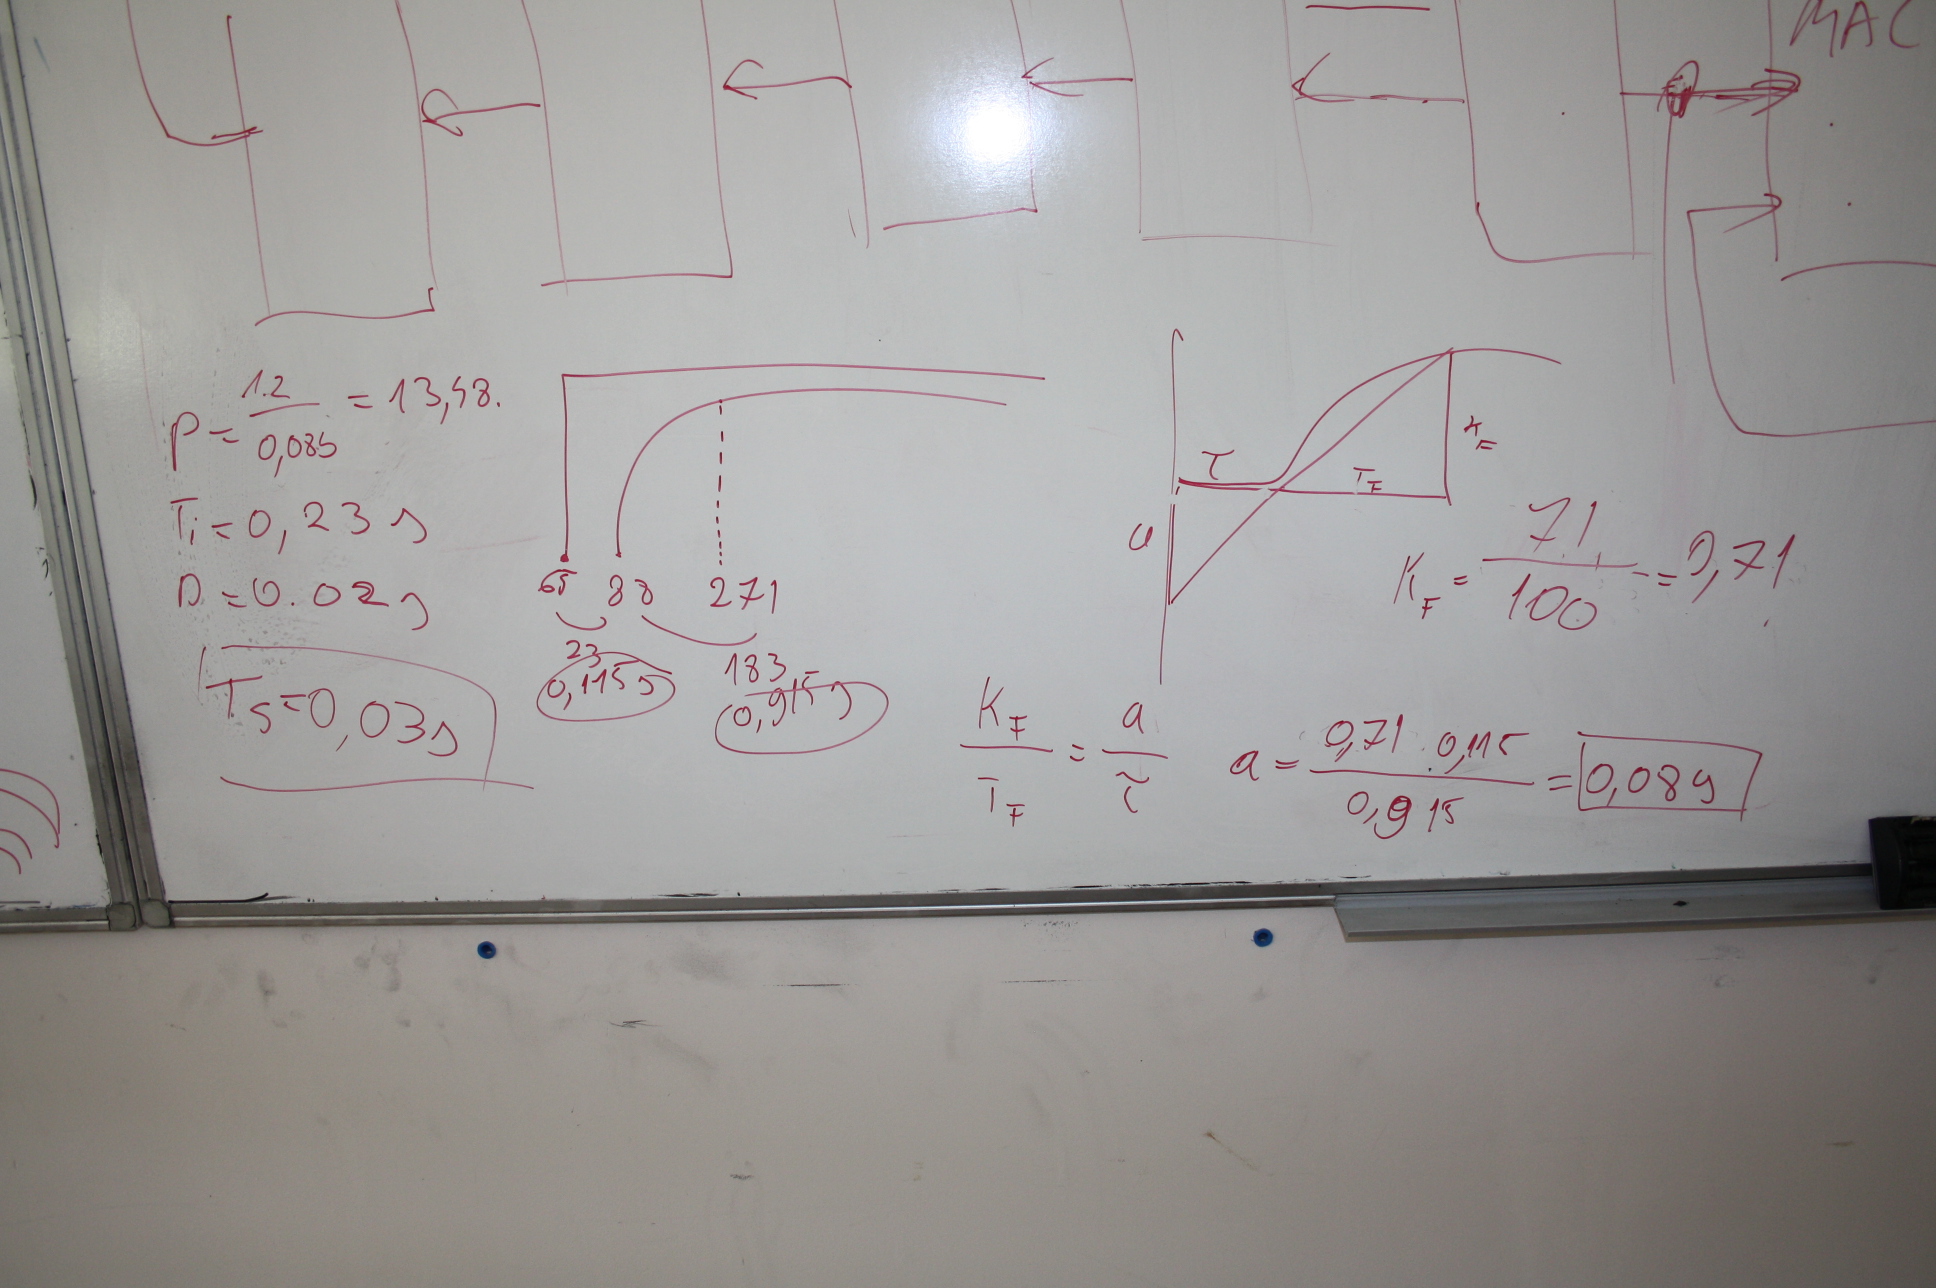 MAC
P = 1.2 / 0,085 = 13,48.
Ti = 0,23 s
D = 0.02 s
Ts = 0,03 s
65 88 271
23 183
0,115 s 0,915 s
τ
TF
a
KF = 71 / 100 = 0,71
KF / TF = a / τ
a = 0,71 . 0,115 / 0,915 = 0,089